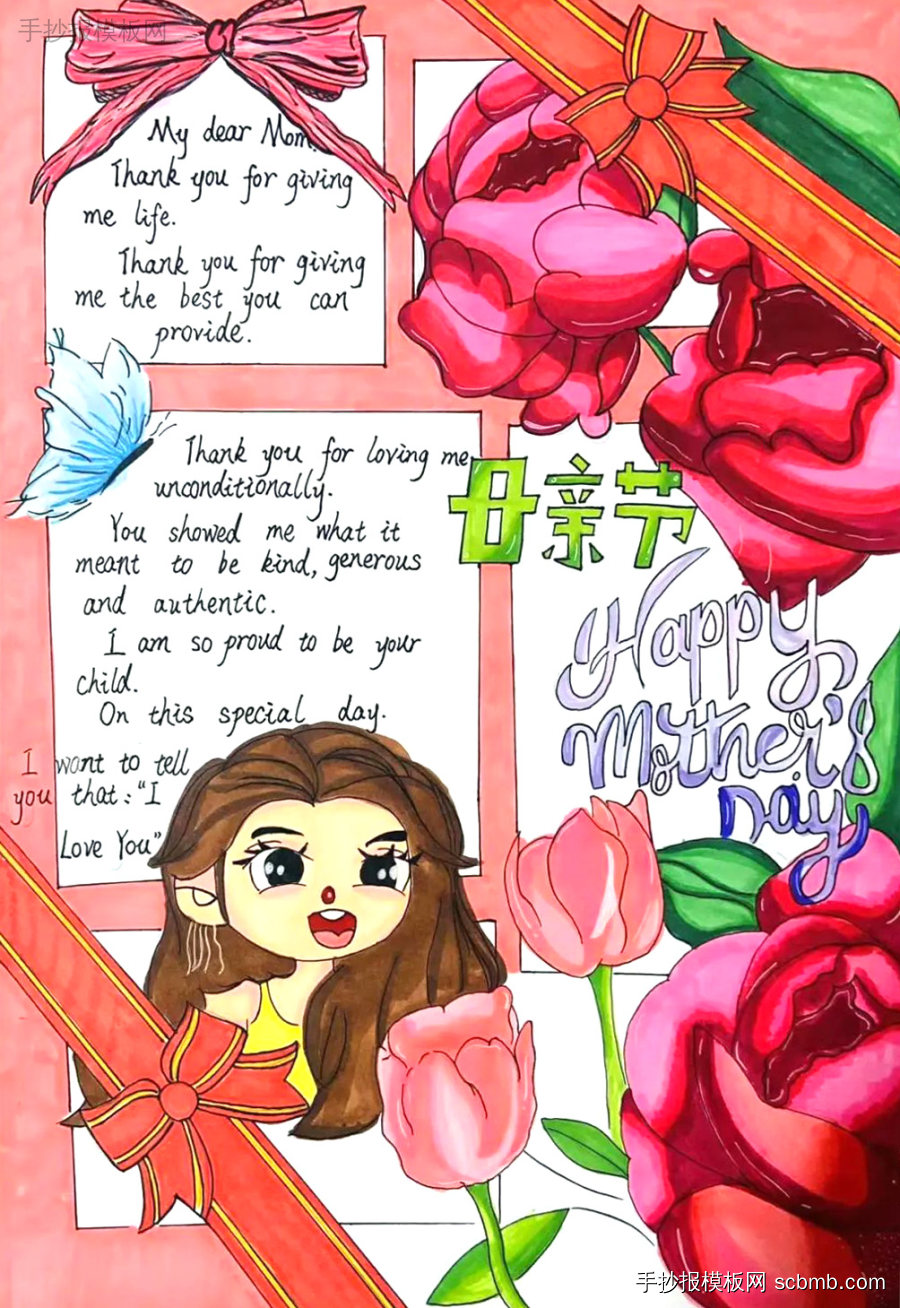 手抄报模板网
My dear Mom.
Thank you for giving
me life.
Thank you for giving
me the best you can
provide.
Thank you for loving me
unconditionally.
You showed me what it
meant to be kind, generous
and authentic.
I am so proud to be your
child.
On this special day.
I want to tell
you that: "I
Love You"
母亲节
Happy
Mother's
Day
手抄报模板网 scbmb.com